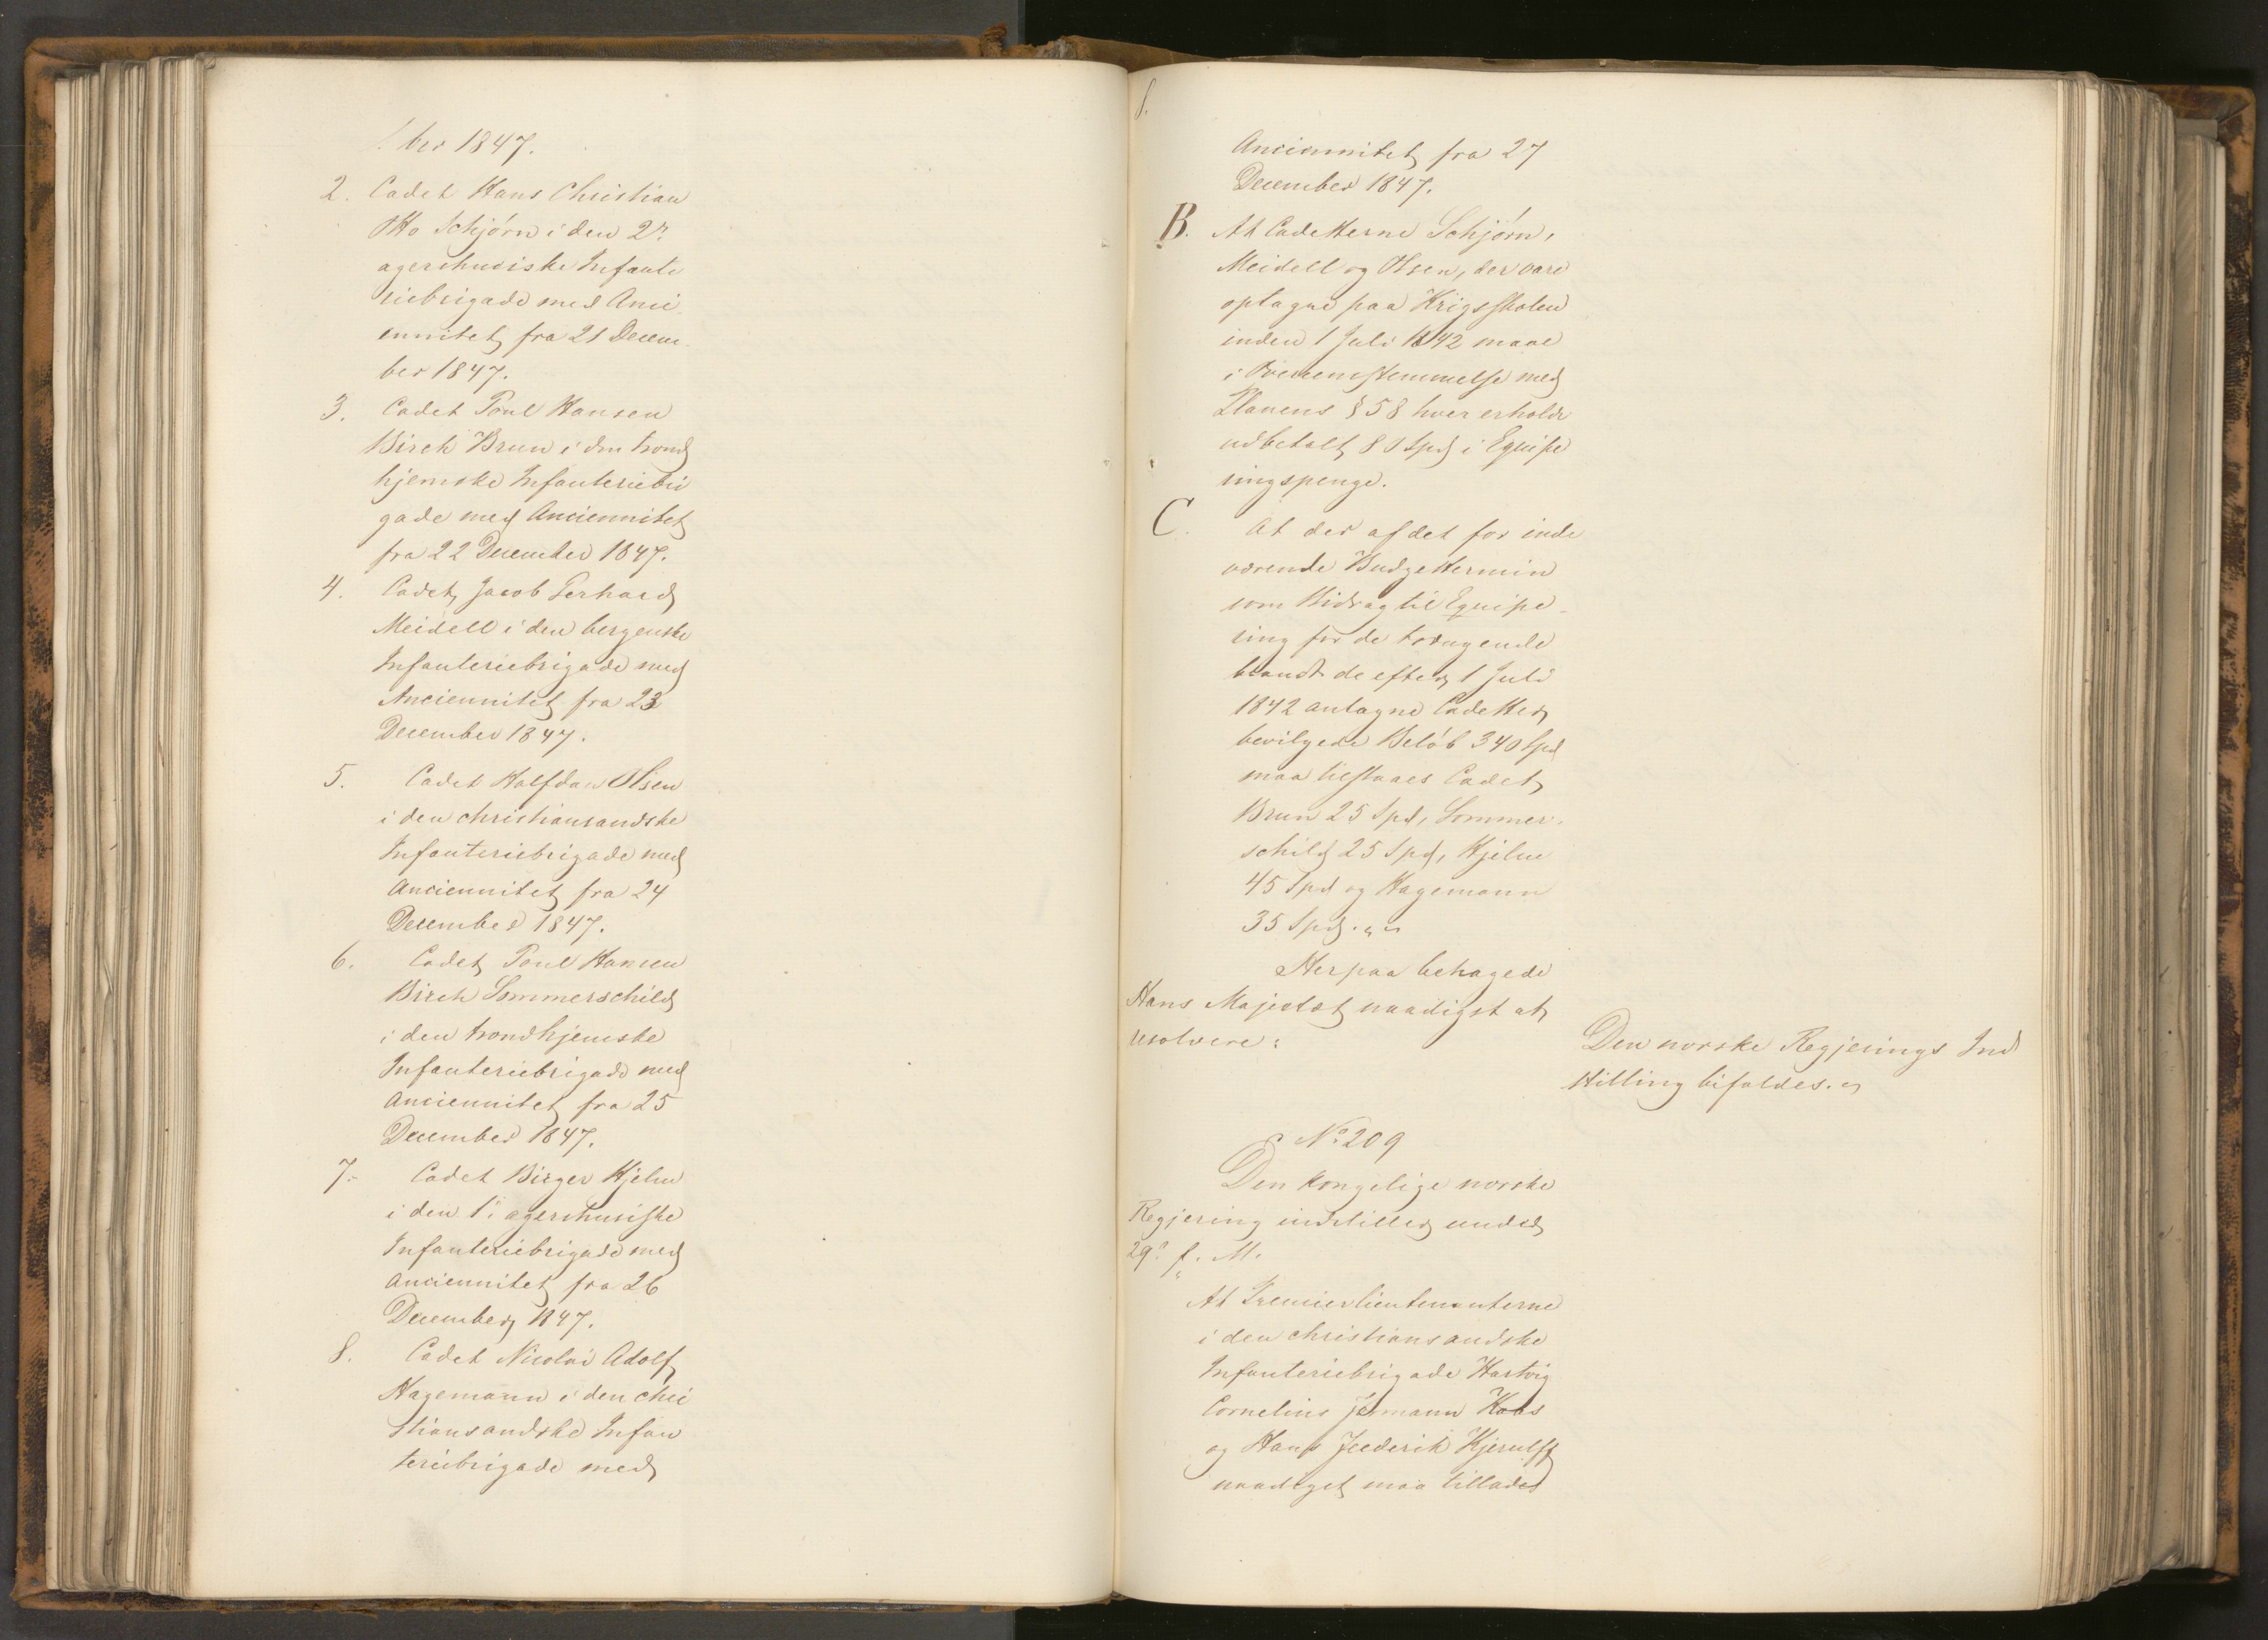 ber 1847.
2. Cadet Hans Christian
Otto Schjørn i den 2n
agershusiske Infante
riebrigade med Anci
ennitet fra 21 Decem
ber 1847.
3. Cadet Poul Hansen
Birch Brun i den trond
hjemske Infanteriebri
gade med Anciennitet
fra 22 December 1847.
4. Cadet Jacob Gerhard
Meidell i den bergenske
Infanteriebrigade med
Anciennitet fra 23
December 1847.
5. Cadet Halfdan Olsen
i den christiansandske
Infanteriebrigade med
Anciennitet fra 24
December 1847.
6. Cadet Poul Hansen
Birch Sommerschild
i den trondhjemske
Infanteriebrigade med
Anciennitet fra 25
December 1847.
7. Cadet Birger Kjelm
i den 1e agershusiske
Infanteriebrigade med
Anciennitet fra 26
December 1847.
8. Cadet Nicolai Adolf
Hagemann i den chri
stiansandske Infan
teriebrigade med
8.
Anciennitet fra 27
December 1847.
B. At Cadetterne Schjørn,
Meidell og Olsen, der vare
optagne paa Krigsskolen
inden 1 Juli 1842 maae
i Overensstemmelse med
Planens § 58 hver erholde
udbetalt 80 Spd i Equipe
ringspenge.
C. At der af det for inde
værende Budgettermin
som Bidrag til Equipe-
ring for de trængende
blandt de efter 1 Juli
1842 antagne Cadetter
bevilgede Beløb 340 Spd
maa tilstaaes Cadet
Brun 25 Spd, Sommer-
schild 25 Spd, Kjelm
45 Spd og Hagemann
35 Spd.
Herpaa behagede
Hans Majestæt naadigst at
resolvere:
Den norske Regjerings Ind
stilling bifaldes.
No 209
Den kongelige norske
Regjering indstiller under
29e f. M.
At Premierlieutenanterne
i den christiansandske
Infanteriebrigade Hartvig
Cornelius Jermann Kaas
og Hans Frederik Kjerulff
naadigst maa tillades